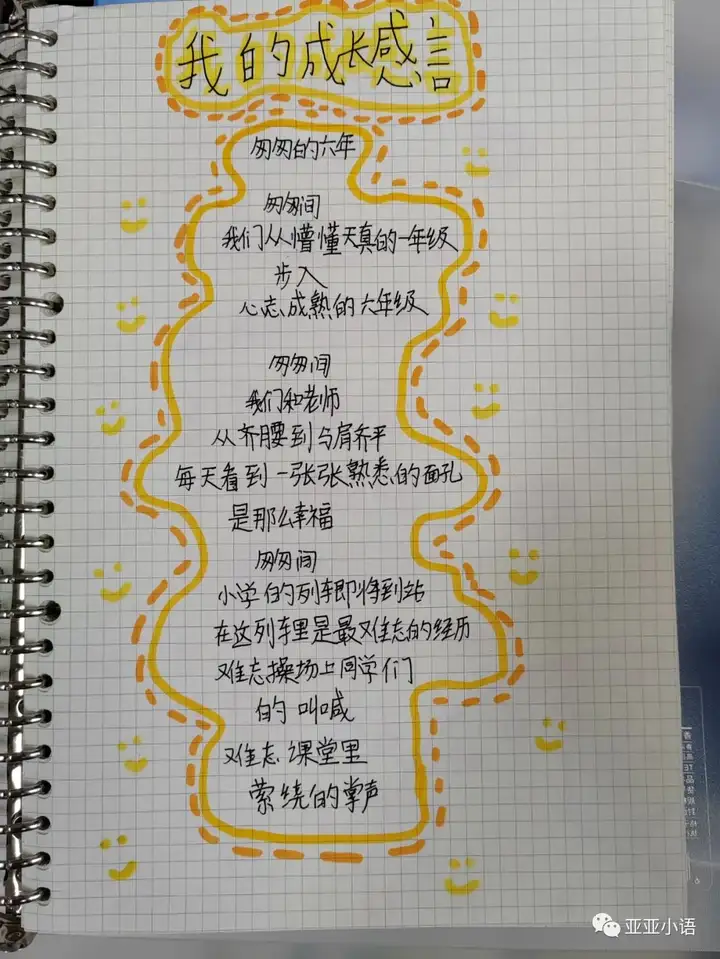 我的成长感言
匆匆的六年
匆匆间
我们从懵懂天真的一年级
步入
心志成熟的六年级
匆匆间
我们和老师
从齐腰到与肩齐平
每天看到一张张熟悉的面孔
是那么幸福
匆匆间
小学的列车即将到站
在这列车里是最难忘的经历
难忘操场上同学们
的叫喊
难忘课堂里
萦绕的掌声
亚亚小语